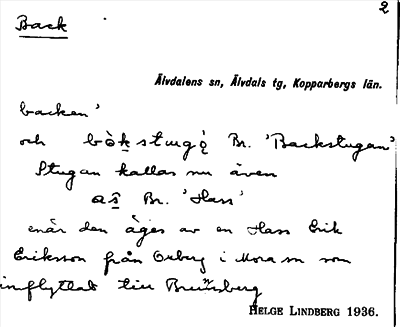 2
Back
Älvdalens sn, Älvdals tg, Kopparbergs län.
backen'
och Br. 'Backstugan'
Stugan kallas nu även
Br. 'Hass'
enär den äges av en Hass Erik
Eriksson från Oxberg i Mora sn som
inflyttat till Brunnsberg
HELGE LINDBERG 1936.